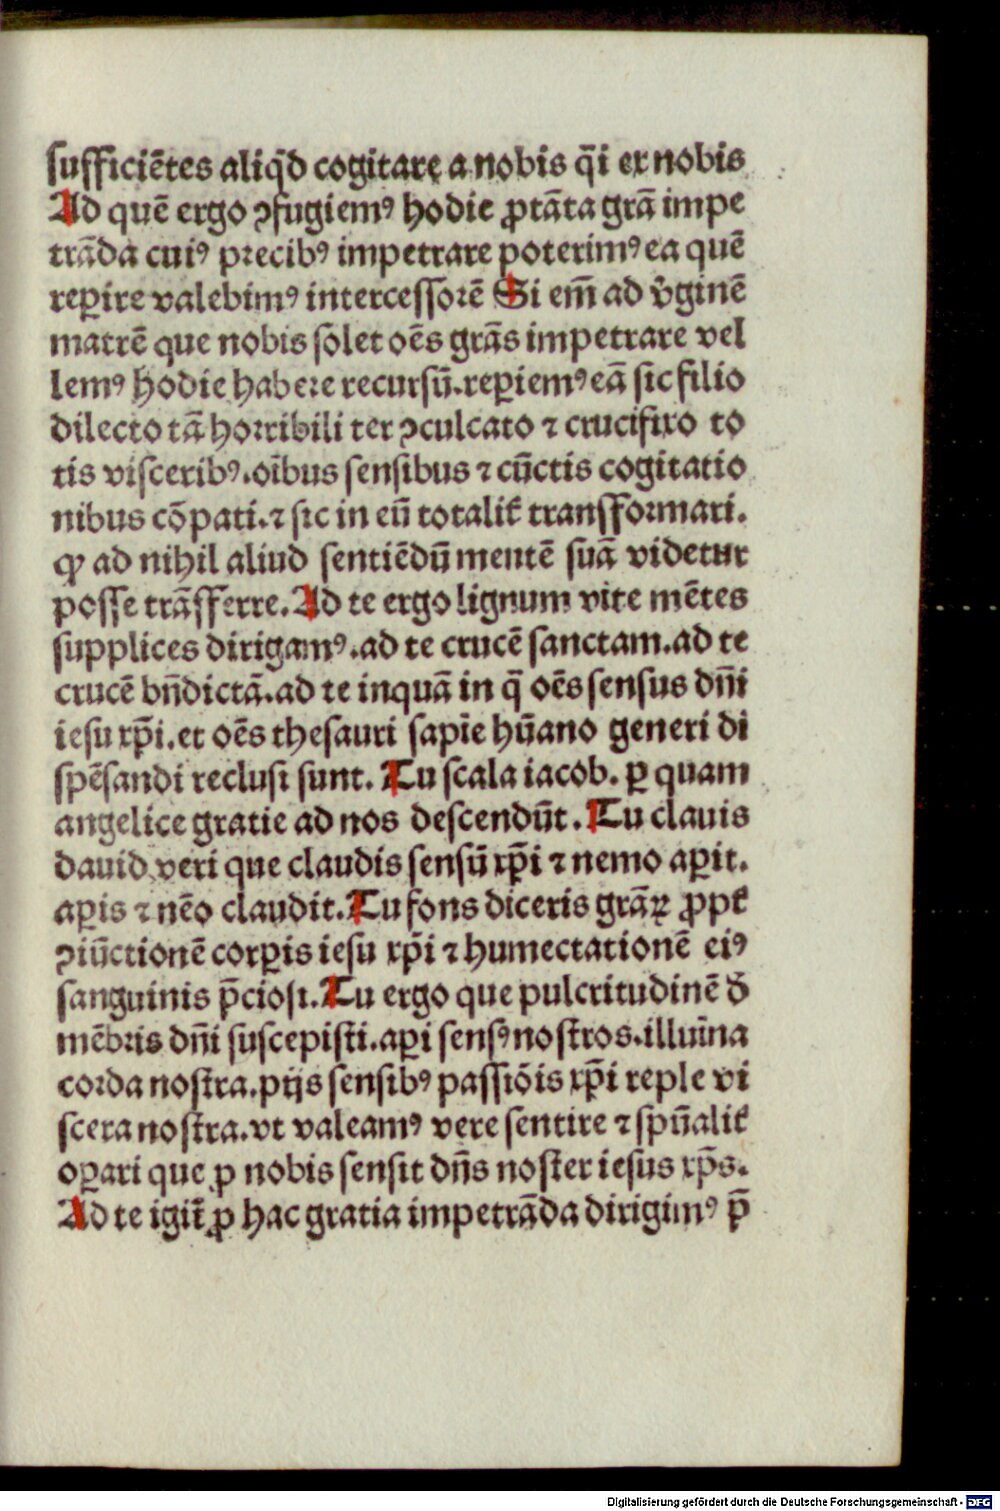 sufficiētes aliq̄d cogitare a nobis q̄i ex nobis
Ad quē ergo ꝯfugiemꝰ hodie ꝓ tāta grā impe
trāda cuiꝰ precibꝰ impetrare poterimꝰ ea quē
reꝑire valebimꝰ intercessorē Si em̄ ad v̓ginē
matrē que nobis solet oēs grās impetrare vel
lemꝰ hodie habere recursū.reꝑiemꝰ eā sic filio
dilecto tā horribili ter ꝯculcato ⁊ crucifixo to
tis visceribꝰ.oībus sensibus ⁊ cūctis cogitatio
nibus cōpati.⁊ sic in eū totalit̓ transformari.
ꝙ ad nihil aliud sentiēdū mentē suā videtur
posse trāsferre. Ad te ergo lignum vite mētes
supplices dirigamꝰ.ad te crucē sanctam.ad te
crucē bn̄dictā.ad te inquā in q̄ oēs sensus dn̄i
iesu xp̄i.et oēs thesauri sapīe hūano generi di
spēsandi reclusi sunt. Tu scala iacob. ꝑ quam
angelice gratie ad nos descendūt. Tu clauis
dauid veri que claudis sensū xp̄i ⁊ nemo aꝑit.
aꝑis ⁊ nēo claudit. Tu fons diceris grāꝝ ꝓpt̓
ꝯiūctionē corꝑis iesu xp̄i ⁊ humectationē eiꝰ
sanguinis p̄ciosi. Tu ergo que pulcritudinē d̓
mēbris dn̄i suscepisti.aꝑi sensꝰ nostros.illuīna
corda nostra.pijs sensibꝰ passiōis xp̄i reple vi
scera nostra.vt valeamꝰ vere sentire ⁊ spūalit̓
oꝑari que ꝓ nobis sensit dn̄s noster iesus xp̄s.
Ad te igit̓ ꝓ hac gratia impetrāda dirigimꝰ p̄
Digitalisierung gefördert durch die Deutsche Forschungsgemeinschaft - DFG